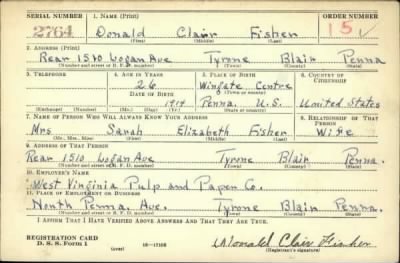 SERIAL NUMBER 1. NAME (Print) ORDER NUMBER
2764 Donald Clair Fisher 15
(First) (Middle) (Last)
2. ADDRESS (Print)
Rear 1510 Logan Ave Tyrone Blair Penna
(Number and street or R. F. D. number) (Town) (County) (State)
3. TELEPHONE 4. AGE IN YEARS 5. PLACE OF BIRTH 6. COUNTRY OF CITIZENSHIP
26 Wingate Centre
DATE OF BIRTH (Town or county)
1914 Penna. U.S. United States
(Exchange) (Number) (Mo.) (Day) (Yr.) (State or country)
7. NAME OF PERSON WHO WILL ALWAYS KNOW YOUR ADDRESS 8. RELATIONSHIP OF THAT PERSON
Mrs Sarah Elizabeth Fisher Wife
(Mr., Mrs., Miss) (First) (Middle) (Last)
9. ADDRESS OF THAT PERSON
Rear 1510 Logan Ave Tyrone Blair Penna.
(Number and street or R. F. D. number) (Town) (County) (State)
10. EMPLOYER'S NAME
West Virginia Pulp and Paper Co.
11. PLACE OF EMPLOYMENT OR BUSINESS
North Penna. Ave. Tyrone Blair Penna.
(Number and street or R. F. D. number) (Town) (County) (State)
I AFFIRM THAT I HAVE VERIFIED ABOVE ANSWERS AND THAT THEY ARE TRUE.
REGISTRATION CARD
D. S. S. Form 1 (over) 16—17105 Donald Clair Fisher
(Registrant's signature)